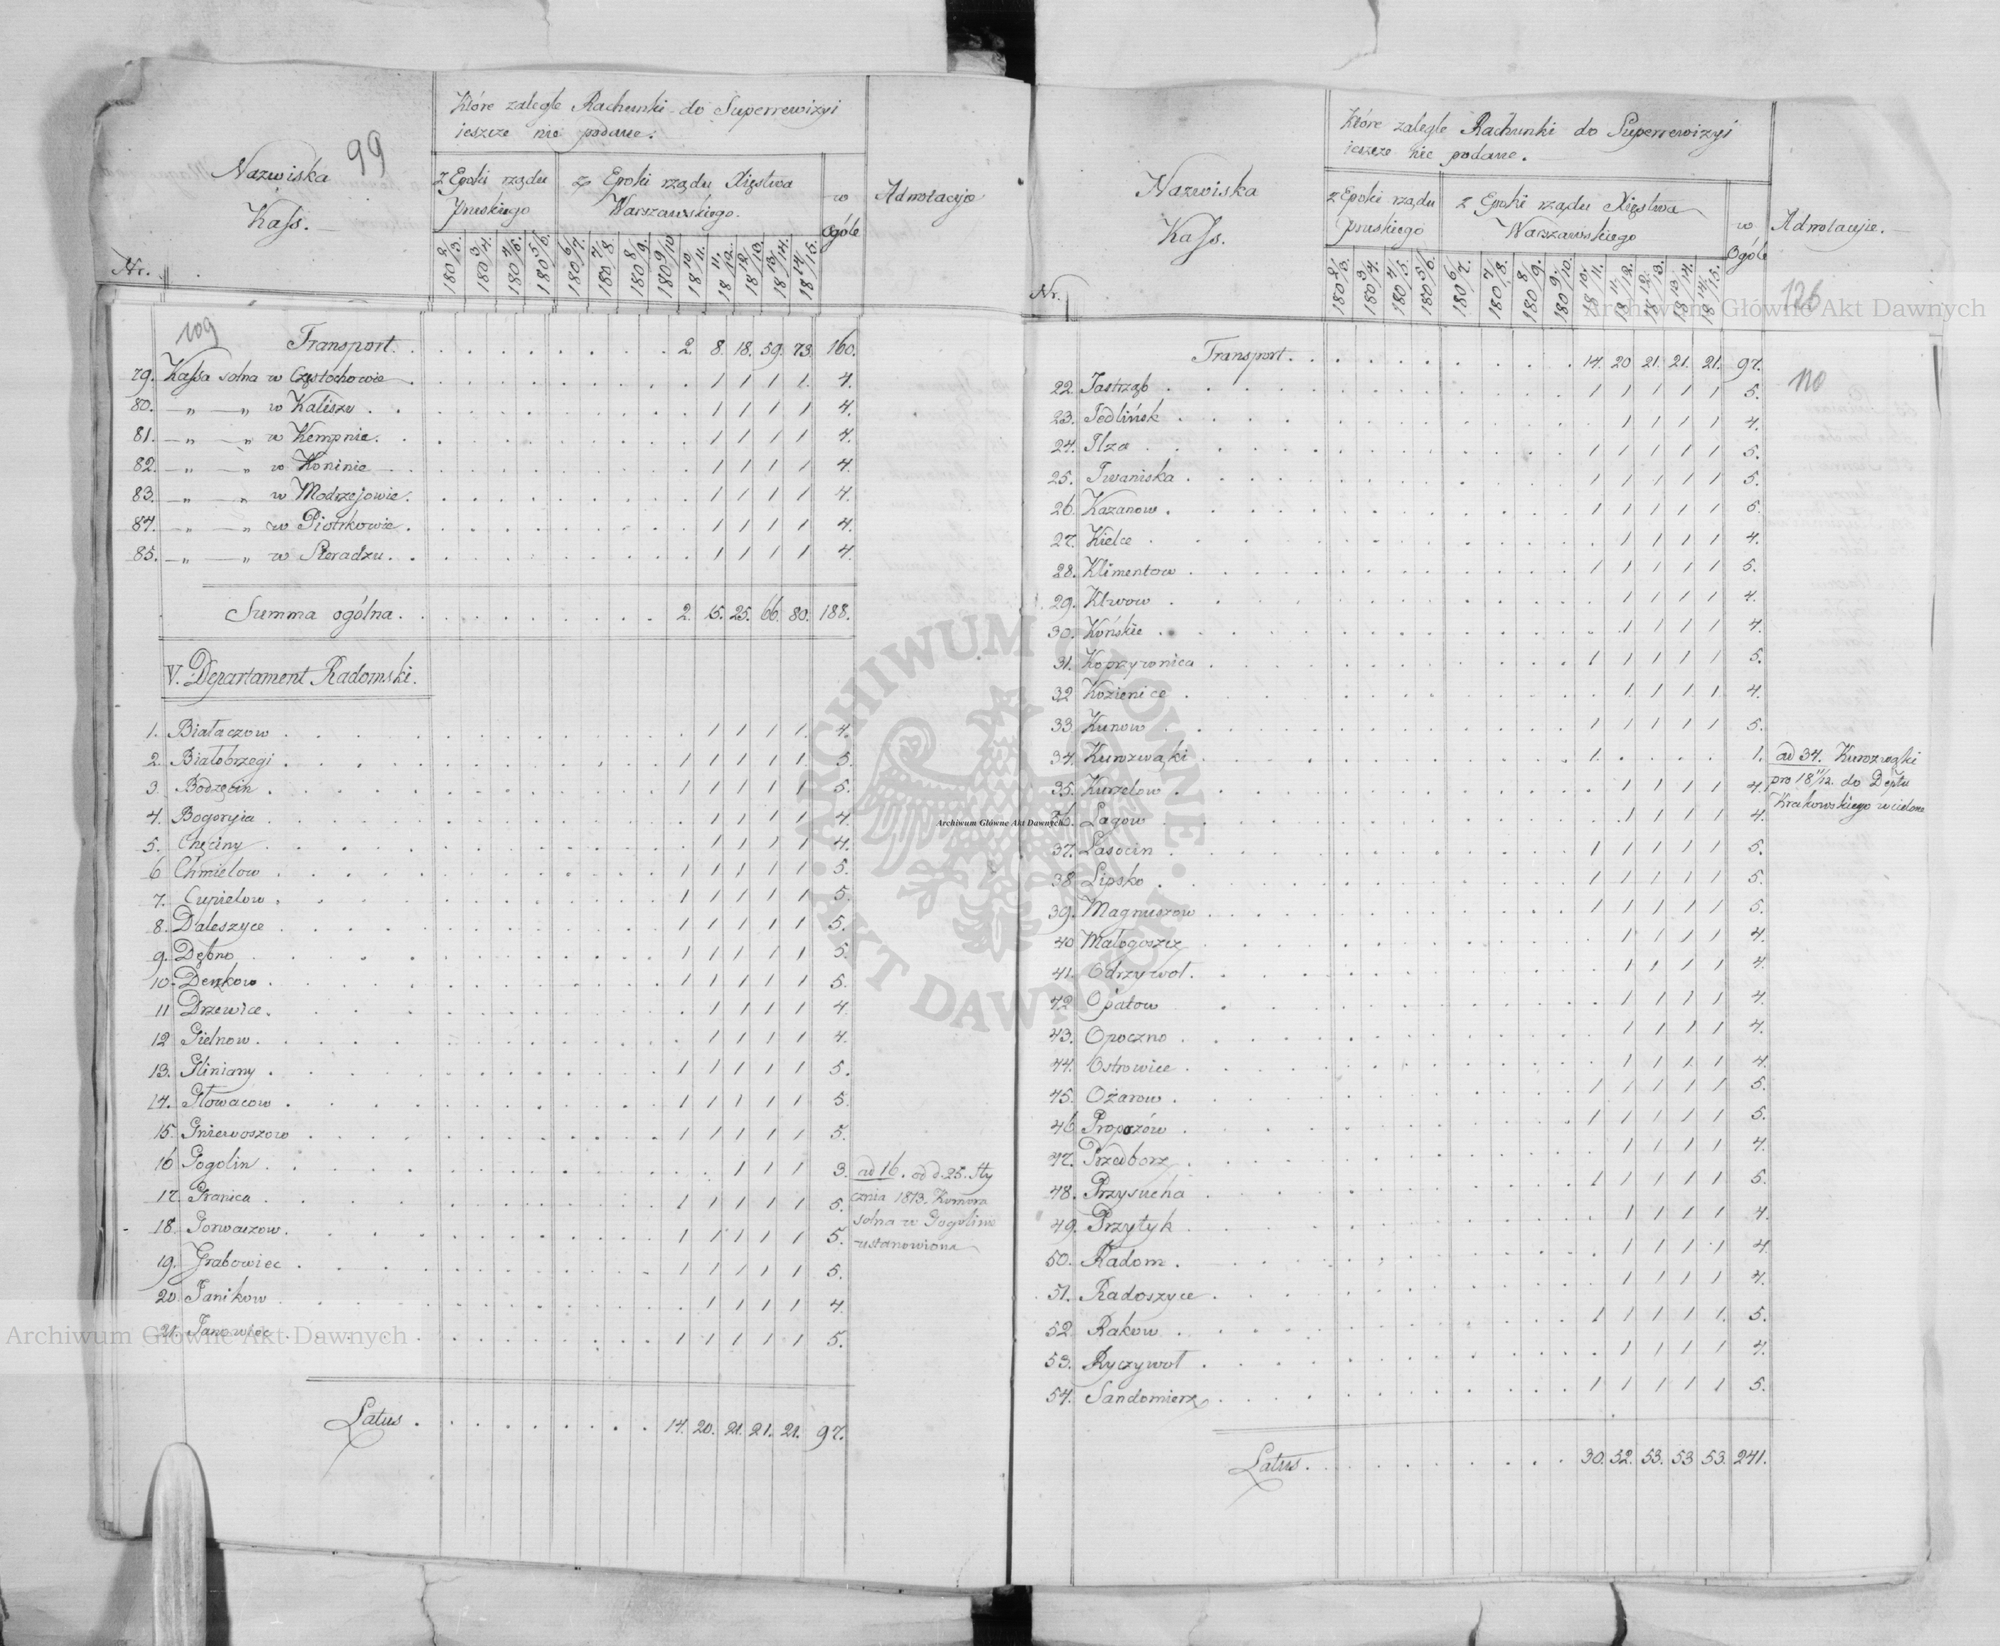 99
Nazwiska
Kass.
Nr.
Które zaległe Rachunki do Superrewizyi
ieszcze nie podane.
z Epoki rządu
Pruskiego
z Epoki rządu Xięstwa
Warszawskiego.
w
Ogóle
Adnotacyje
180 2/3. 180 3/4. 180 4/5. 180 5/6. 180 6/7. 180 7/8. 180 8/9. 180 9/10 18 10/11. 18 11/12. 18 12/13. 18 13/14. 18 14/15.
109
Transport. 2. 8. 18. 59. 73. 160.
79. Kassa solna w Częstochowie 1 1 1 1. 4.
80. —„— „ w Kaliszu 1 1 1 1 4.
81. —„— „ w Kempnie. 1 1 1 1 4.
82. —„— „ w Koninie 1 1 1 1 4.
83. —„— „ w Modrzejowie. 1 1 1 1 4.
84. —„— „ w Piotrkowie. 1 1 1 1 4.
85. —„— „ w Sieradzu. 1 1 1 1 4.
Summa ogólna. 2. 15. 25. 66. 80. 188.
V. Departament Radomski.
1. Białaczow 1 1 1 1. 4.
2. Białobrzegi 1 1 1 1 1 5.
3. Bodzęcin 1 1 1 1 1 5.
4. Bogoryia 1 1 1 1 4.
5. Chęciny 1 1 1 1 4.
6 Chmielow 1 1 1 1 1 5.
7. Cupielow 1 1 1 1 1 5.
8. Daleszyce 1 1 1 1 1 5.
9. Dębno 1 1 1 1 1 5.
10. Denkow 1 1 1 1 1 5.
11 Drzewice. 1 1 1 1 4.
12 Gielnow. 1 1 1 1 4.
13. Gliniany 1 1 1 1 1 5.
14. Głowaczow 1 1 1 1 1 5.
15. Gniewoszow 1 1 1 1 1 5.
16 Gogolin 1 1 1 3.
17. Granica 1 1 1 1 1 5.
18. Gorwaszow. 1 1 1 1 1 5.
19. Grabowiec 1 1 1 1 1 5.
20. Janikow 1 1 1 1 4.
21. Janowiec 1 1 1 1 1 5.
ad 16. od d. 25. Sty
cznia 1813. Komora
solna w Gogolinie
ustanowiona
Latus. 14. 20. 21. 21. 21. 97.
Nazwiska
Kass.
Nr.
Które zaległe Rachunki do Superrewizyi
ieszcze nie podane.
z Epoki rządu
pruskiego
z Epoki rządu Xięstwa
Warszawskiego
w
Ogóle
Adnotacyie.
126
180 2/3. 180 3/4. 180 4/5. 180 5/6. 180 6/7. 180 7/8. 180 8/9. 180 9/10. 18 10/11. 18 11/12. 18 12/13. 18 13/14. 18 14/15.
110
Transport. 14. 20 21. 21. 21. 97.
22. Jastrząb 1 1 1 1 1 5.
23. Jedlińsk 1 1 1 1 4.
24. Ilza 1 1 1 1 1 5.
25. Iwaniska 1 1 1 1 1 5.
26. Kazanow. 1 1 1 1 1 5.
27. Kielce 1 1 1 1 4.
28. Klimentow 1 1 1 1 1 5.
29. Klwow 1 1 1 1 4.
30. Końskie 1 1 1 1 4.
31. Koprzywnica 1 1 1 1 1 5.
32 Kozienice 1 1 1 1 4.
33 Kunow 1 1 1 1 1 5.
34. Kurozwąki 1. 1.
35. Kurzelow 1 1 1 1 4.
36. Lagow 1 1 1 1 4.
37. Lasocin 1 1 1 1 1 5.
38 Lipsko 1 1 1 1 1 5.
39. Magnuszow 1 1 1 1 1 5.
40 Małogoszcz 1 1 1 1 4.
41. Odrzywoł. 1 1 1 1 4.
42 Opatow 1 1 1 1 4.
43. Opoczno 1 1 1 1 4.
44. Ostrowiec 1 1 1 1 4.
45. Ożarow. 1 1 1 1 1 5.
46 Proposzów 1 1 1 1 1 5.
47. Przedborz 1 1 1 1 4.
48. Przysucha 1 1 1 1 1 5.
49. Przytyk 1 1 1 1 4.
50. Radom. 1 1 1 1 4.
51. Radoszyce 1 1 1 1 4.
52. Rakow 1 1 1 1 1 5.
53. Ryczywoł 1 1 1 1 4.
54. Sandomierz 1 1 1 1 1 5.
ad 34. Kurozwąki
pro 18 11/12. do Deptu
Krakowskiego wcielone
Latus. 30. 52. 53. 53 53. 241.
Archiwum Główne Akt Dawnych
Archiwum Główne Akt Dawnych
Archiwum Główne Akt Dawnych
ARCHIWUM GŁÓWNE AKT DAWNYCH